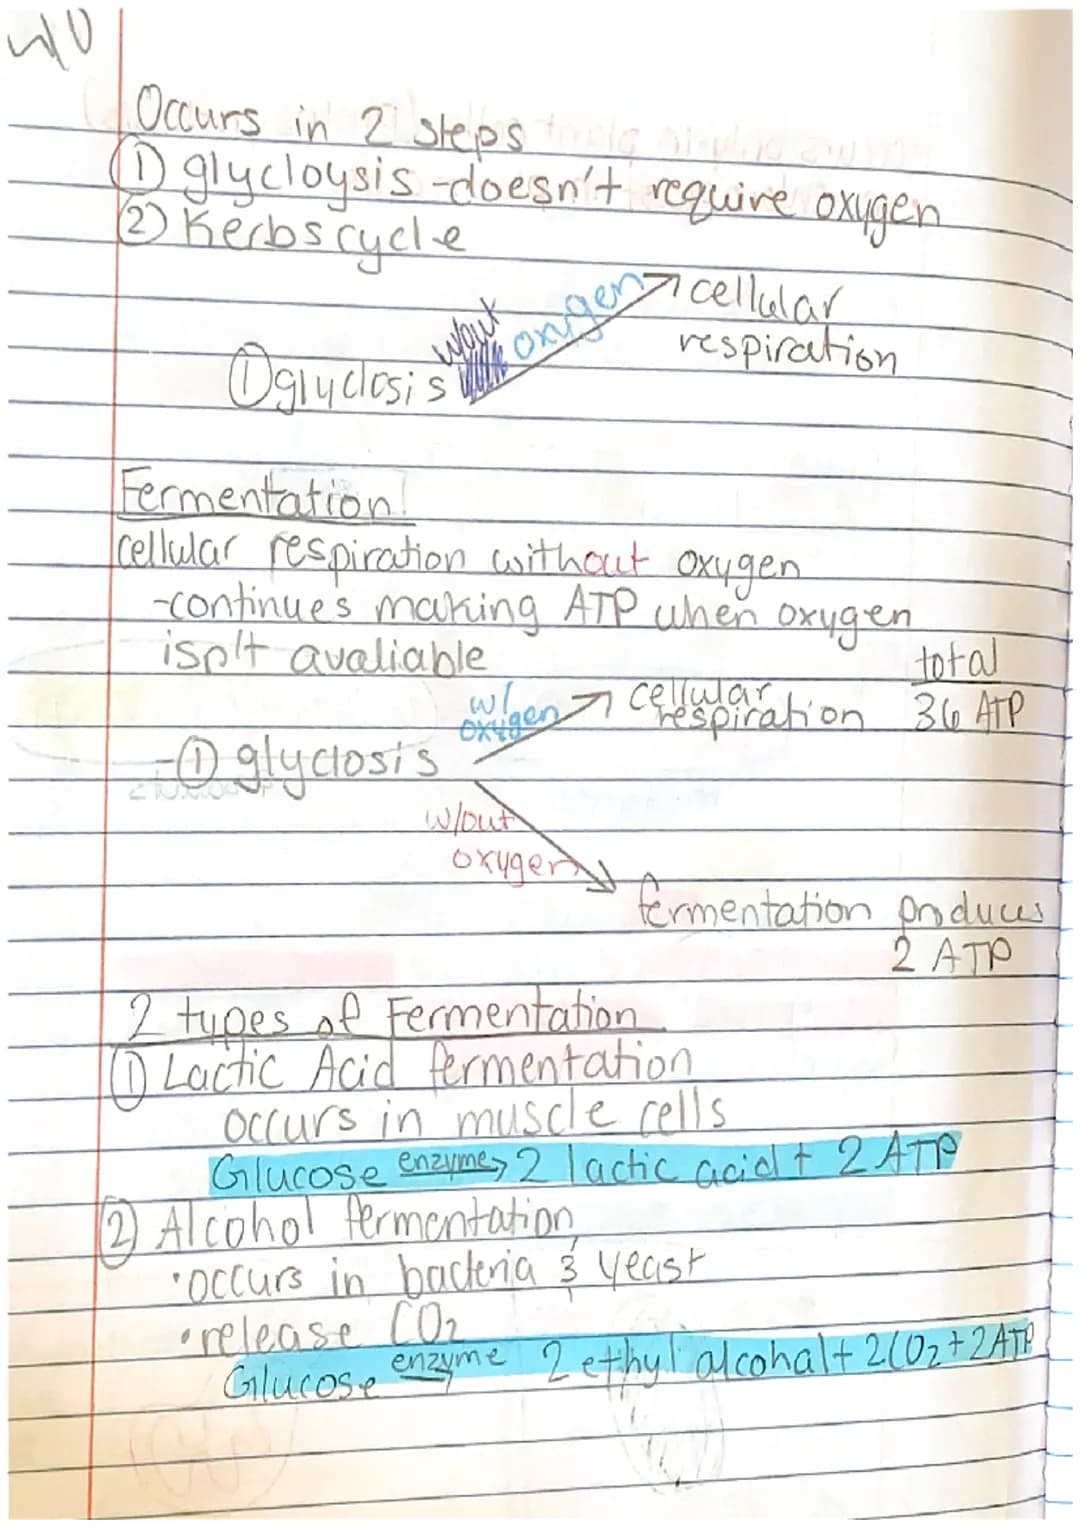 Occurs in 2 steps
① glycloysis -doesn't require oxygen
② Kerbs cycle
① glyclosis w/out oxygen cellular
respiration
Fermentation:
cellular respiration without oxygen
-continues making ATP when oxygen
isn't avaliable
total
w/ oxygen cellular respiration 36 ATP
-① glyclosis
w/out
oxygen
fermentation produces
2 ATP
2 types of Fermentation
① Lactic Acid fermentation
occurs in muscle cells
Glucose enzyme 2 lactic acid + 2 ATP
② Alcohol fermentation
•occurs in bacteria & yeast
•release CO2
Glucose enzyme 2 ethyl alcohal + 2CO2 + 2ATP